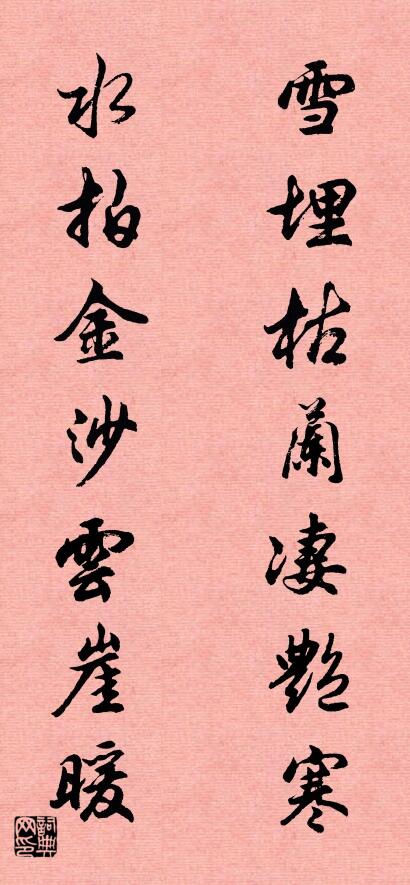 雪埋枯蘭凄艷寒
水拍金沙雲崖暖
詞典网印